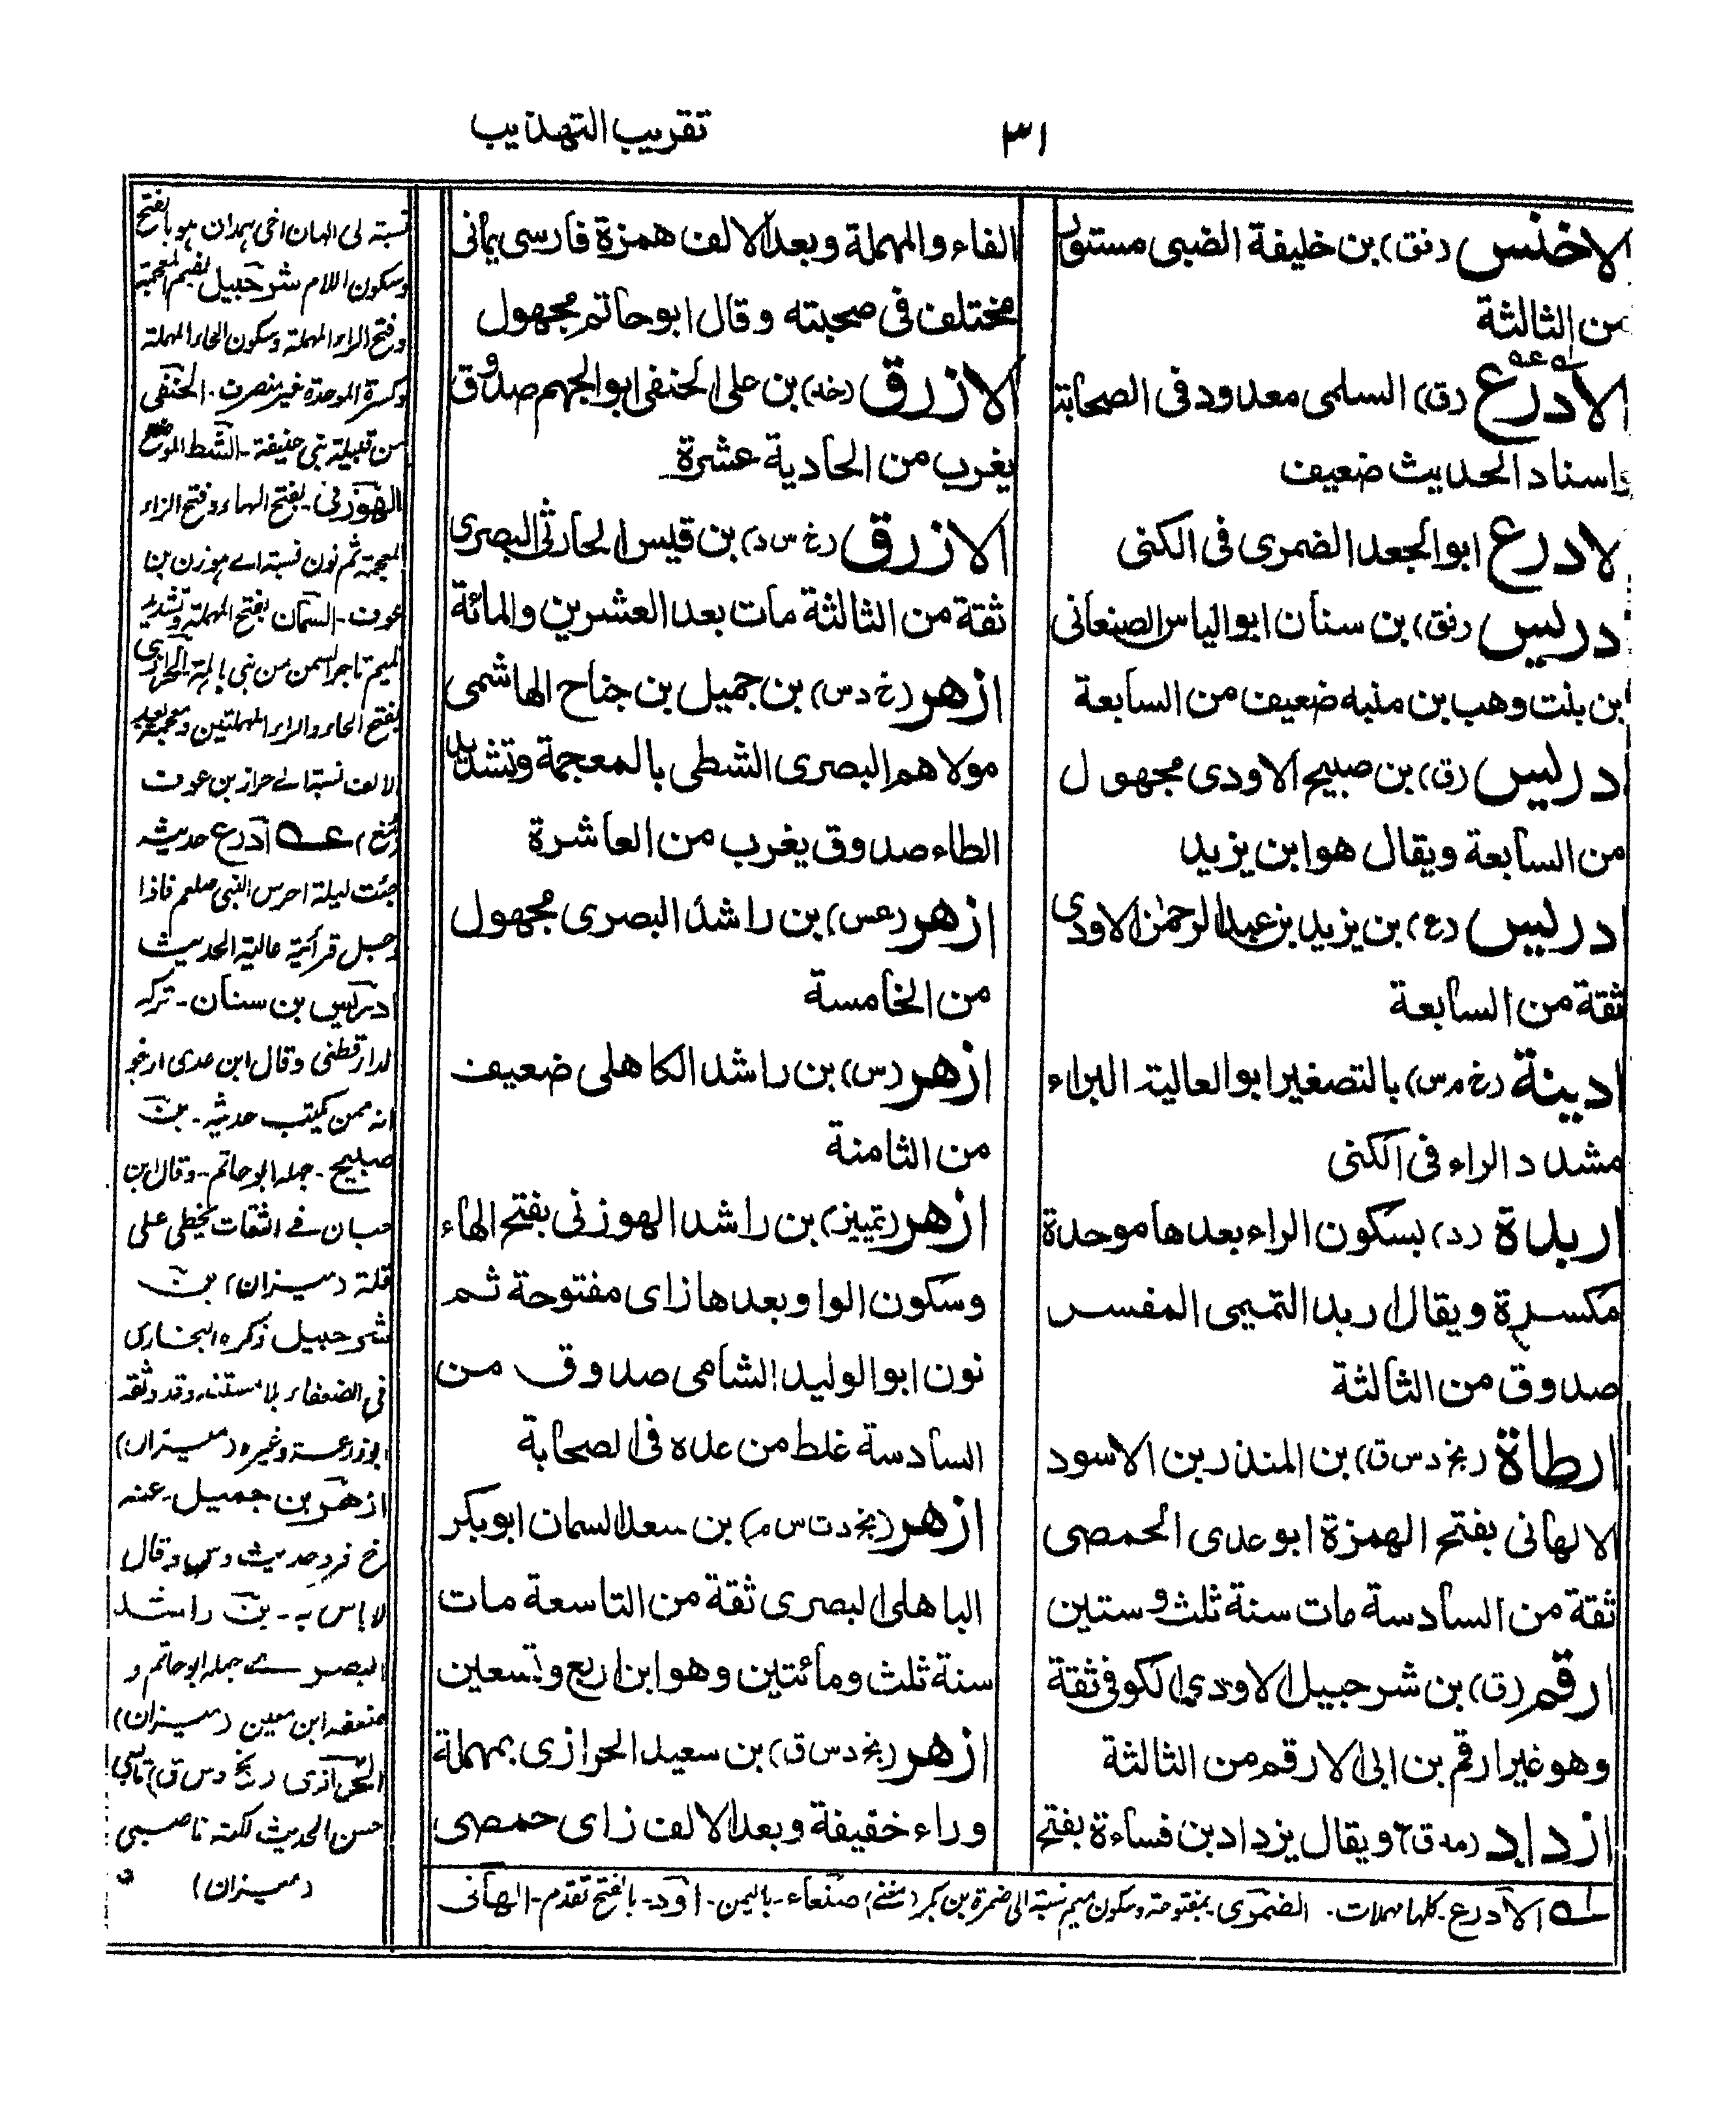 تقريب التهذيب
٣١
الاخنس (دفق) بن خليفة الضبى مستور
من الثالثة
الادرع (ق) السلمى معدود فى الصحابة
واسناد الحديث ضعيف
لادرع ابو الجعد الضمرى فى الكنى
دريس (فق) بن سنان ابو الياس الصنعانى
بن بنت وهب بن منبه ضعيف من السابعة
دريس (ق) بن صبيح الاودى مجهول
من السابعة ويقال هو ابن يزيد
ادريس (ع) بن يزيد بن عبد الرحمن الاودى
ثقة من السابعة
ادينة (خ م س) بالتصغير ابو العالية البراء
مشدد الراء فى الكنى
اربدة (د) بسكون الراء بعدها موحدة
مكسرة ويقال اربد التميمى المفسر
صدوق من الثالثة
ارطاة (بخ د س ق) بن المنذر بن الاسود
الالهانى بفتح الهمزة ابو عدى الحمصى
ثقة من السادسة مات سنة ثلث وستين
ارقم (ق) بن شرحبيل الاودى الكوفى ثقة
وهو غير ارقم بن ابى الارقم من الثالثة
ازداد (مد ق) ويقال يزداد بن فساءة بفتح
الفاء والمهملة وبعد الالف همزة فارسى يمانى
مختلف فى صحبته وقال ابو حاتم مجهول
الازرق (خد) بن على الحنفى ابو الجهم صدوق
يغرب من الحادية عشرة
الازرق (خ س د) بن قيس الحارثى البصرى
ثقة من الثالثة مات بعد العشرين والمائة
ازهر (خ د س) بن جميل بن جناح الهاشمى
مولاهم البصرى الشطى بالمعجمة وتشديد
الطاء صدوق يغرب من العاشرة
ازهر (عس) بن راشد البصرى مجهول
من الخامسة
ازهر (س) بن راشد الكاهلى ضعيف
من الثامنة
ازهر (تمييز) بن راشد الهوزنى بفتح الهاء
وسكون الواو وبعدها زاى مفتوحة ثم
نون ابو الوليد الشامى صدوق من
السادسة غلط من عده فى الصحابة
ازهر (بخ د ت س م) بن سعد السمان ابو بكر
الباهلى البصرى ثقة من التاسعة مات
سنة ثلث ومائتين وهو ابن اربع وتسعين
ازهر (بخ د س ق) بن سعيد الحرازى بمهملة
وراء خفيفة وبعد الالف زاى حمصى
الادرع - كلها مهملات - الضمرى - بمفتوحة وسكون ميم نسبة الى ضمرة بن بكر (مغنى) صنعاء - باليمن - اود - بالفتح تقدم - الهانى
نسبة لى الهان اخى همدان هو بالفتح
وسكون اللام شرحبيل بضم المعجمة
وفتح الراء المهملة وسكون الحاء المهملة
وكسرة الموحدة غير منصرف - الحنفى
من قبيلة بنى حنيفة - الشط الموضع
الهوزنى - بفتح الهاء وفتح الزاء
المعجمة ثم نون نسبة الے هوزن بن
عوف - السمان بفتح المهملة وتشديد
الميم تاجر السمن من بنى باهلة - الحرازى
بفتح الحاء والراء المهملتين ومعجمة بعد
الالف نسبة الے حراز بن عوف
ادرع حديثه
جئت ليلة احرس النبى صلعم فاذا
رجل قرأته عالية الحديث
ادريس بن سنان - تركه
الدارقطنى وقال ابن عدى ارجو
انه ممن يكتب حديثه - بن
صبيح - جهله ابو حاتم - وقال ابن
حبان فے الثقات يخطى على
قلة (ميزان) بن
شرحبيل ذكره البخارى
فى الضعفاء بلا مستند وقد وثقه
ابو زرعة وغيره (ميزان)
ازهر بن جميل - عنه
خ فرد حديث وس وقال
لا باس به - بن راشد
البصرے جهله ابو حاتم و
ضعفه ابن معين (ميزان)
الحرازى (بخ د س ق) تابعى
حسن الحديث لكنه ناصبى
(ميزان)